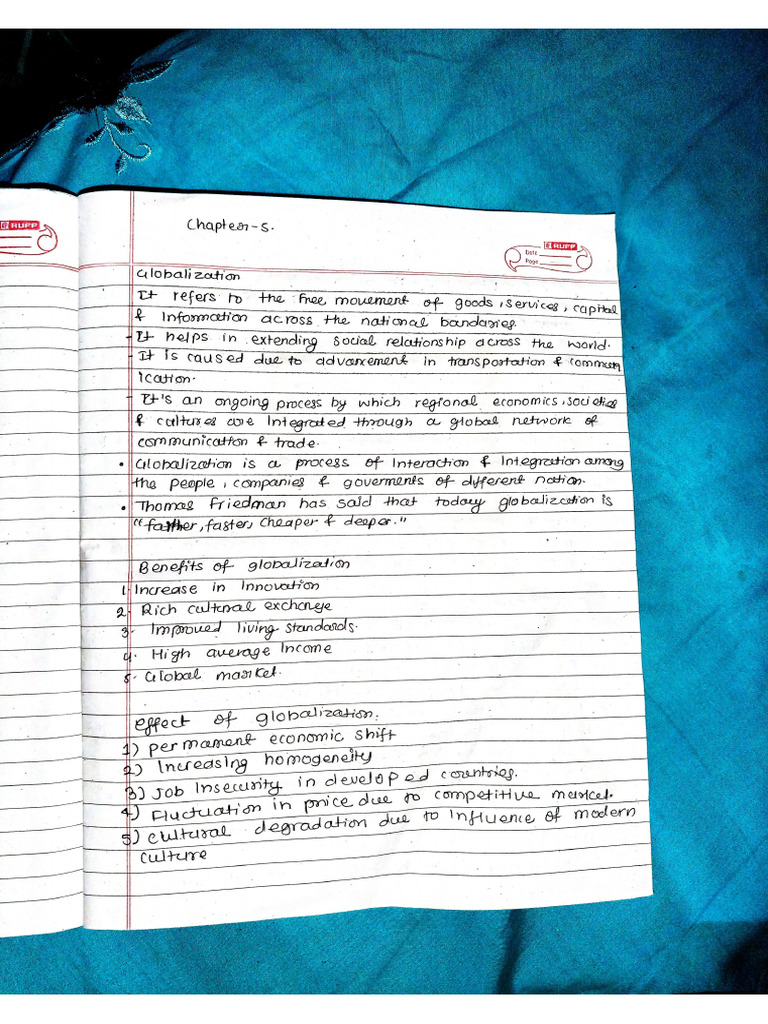 RUPP
Chapter-5.
RUPP
Date
Page
Globalization
It refers to the free movement of goods, services, capital
& Information across the national bondaries.
- It helps in extending social relationship across the world.
- It is caused due to advancement in transportation & commun
ication.
- It's an ongoing process by which regional economics, societies
& cultures are Integrated through a global network of
communication & trade.
• Globalization is a process of Interaction & Integration among
the people, companies & goverments of different nation.
• Thomas Friedman has said that today globalization is
"farther, faster, cheaper & deeper."
Benefits of globalization
1. Increase in Innovation
2. Rich cultural exchange
3. Improved living standards.
4. High average Income
5. Global market.
Effect of globalization.
1) permament economic shift
2) Increasing homogeneity
3) Job Insecurity in developed countries.
4) Fluctuation in price due to competitive market.
5) cultural degradation due to Influence of modern
culture